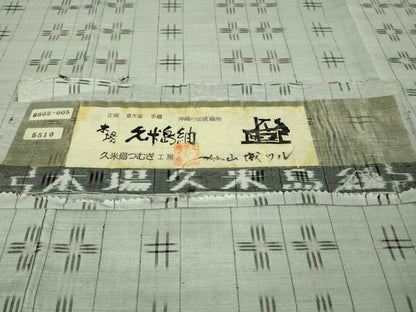 正絹 草木染 手織 沖縄の伝統織物
8802-005
5510
本場 久米島紬
久米島つむぎ工房
山城ツル
本場久米島紬